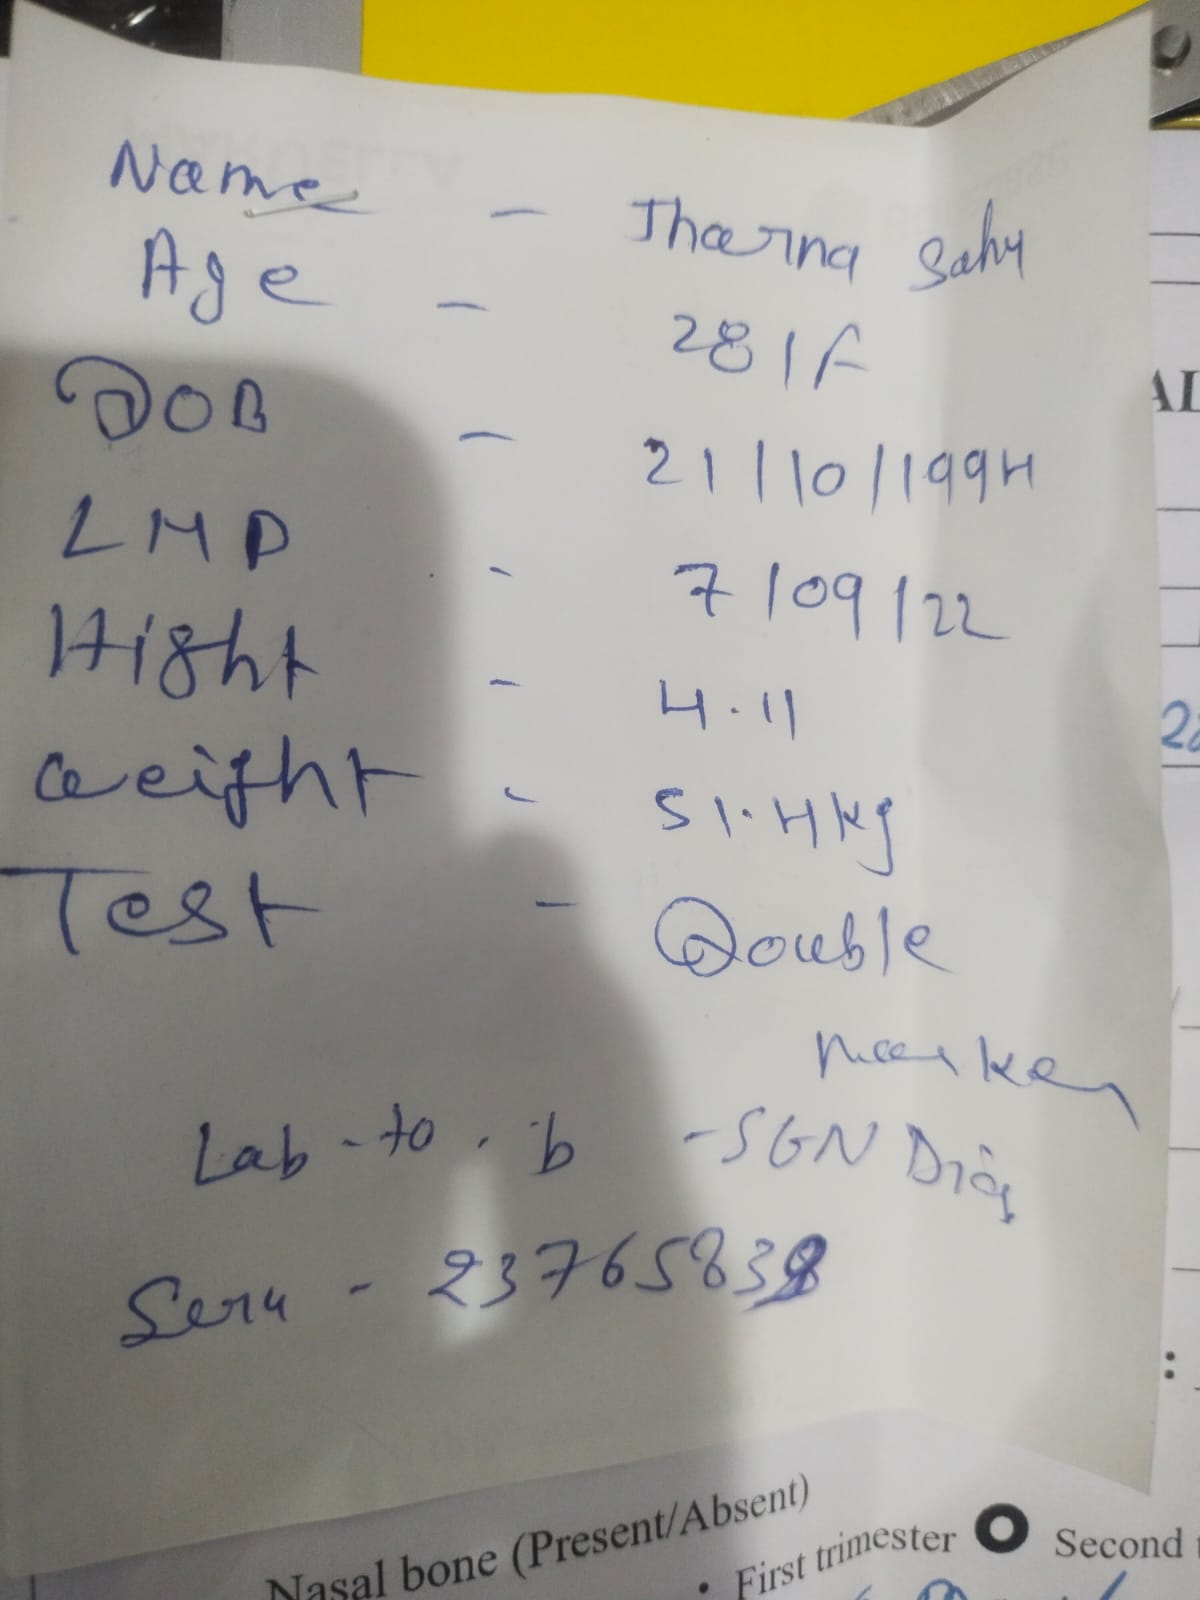 Name - Jharna Sahu
Age - 28/F
DOB - 21/10/1994
LMP - 7/09/22
Hight - 4.11
Weight - 51.4kg
Test - Double
Marker
Lab-to.b - SGN Diag
Seru - 23765838
AL
:
Nasal bone (Present/Absent)
• First trimester O Second